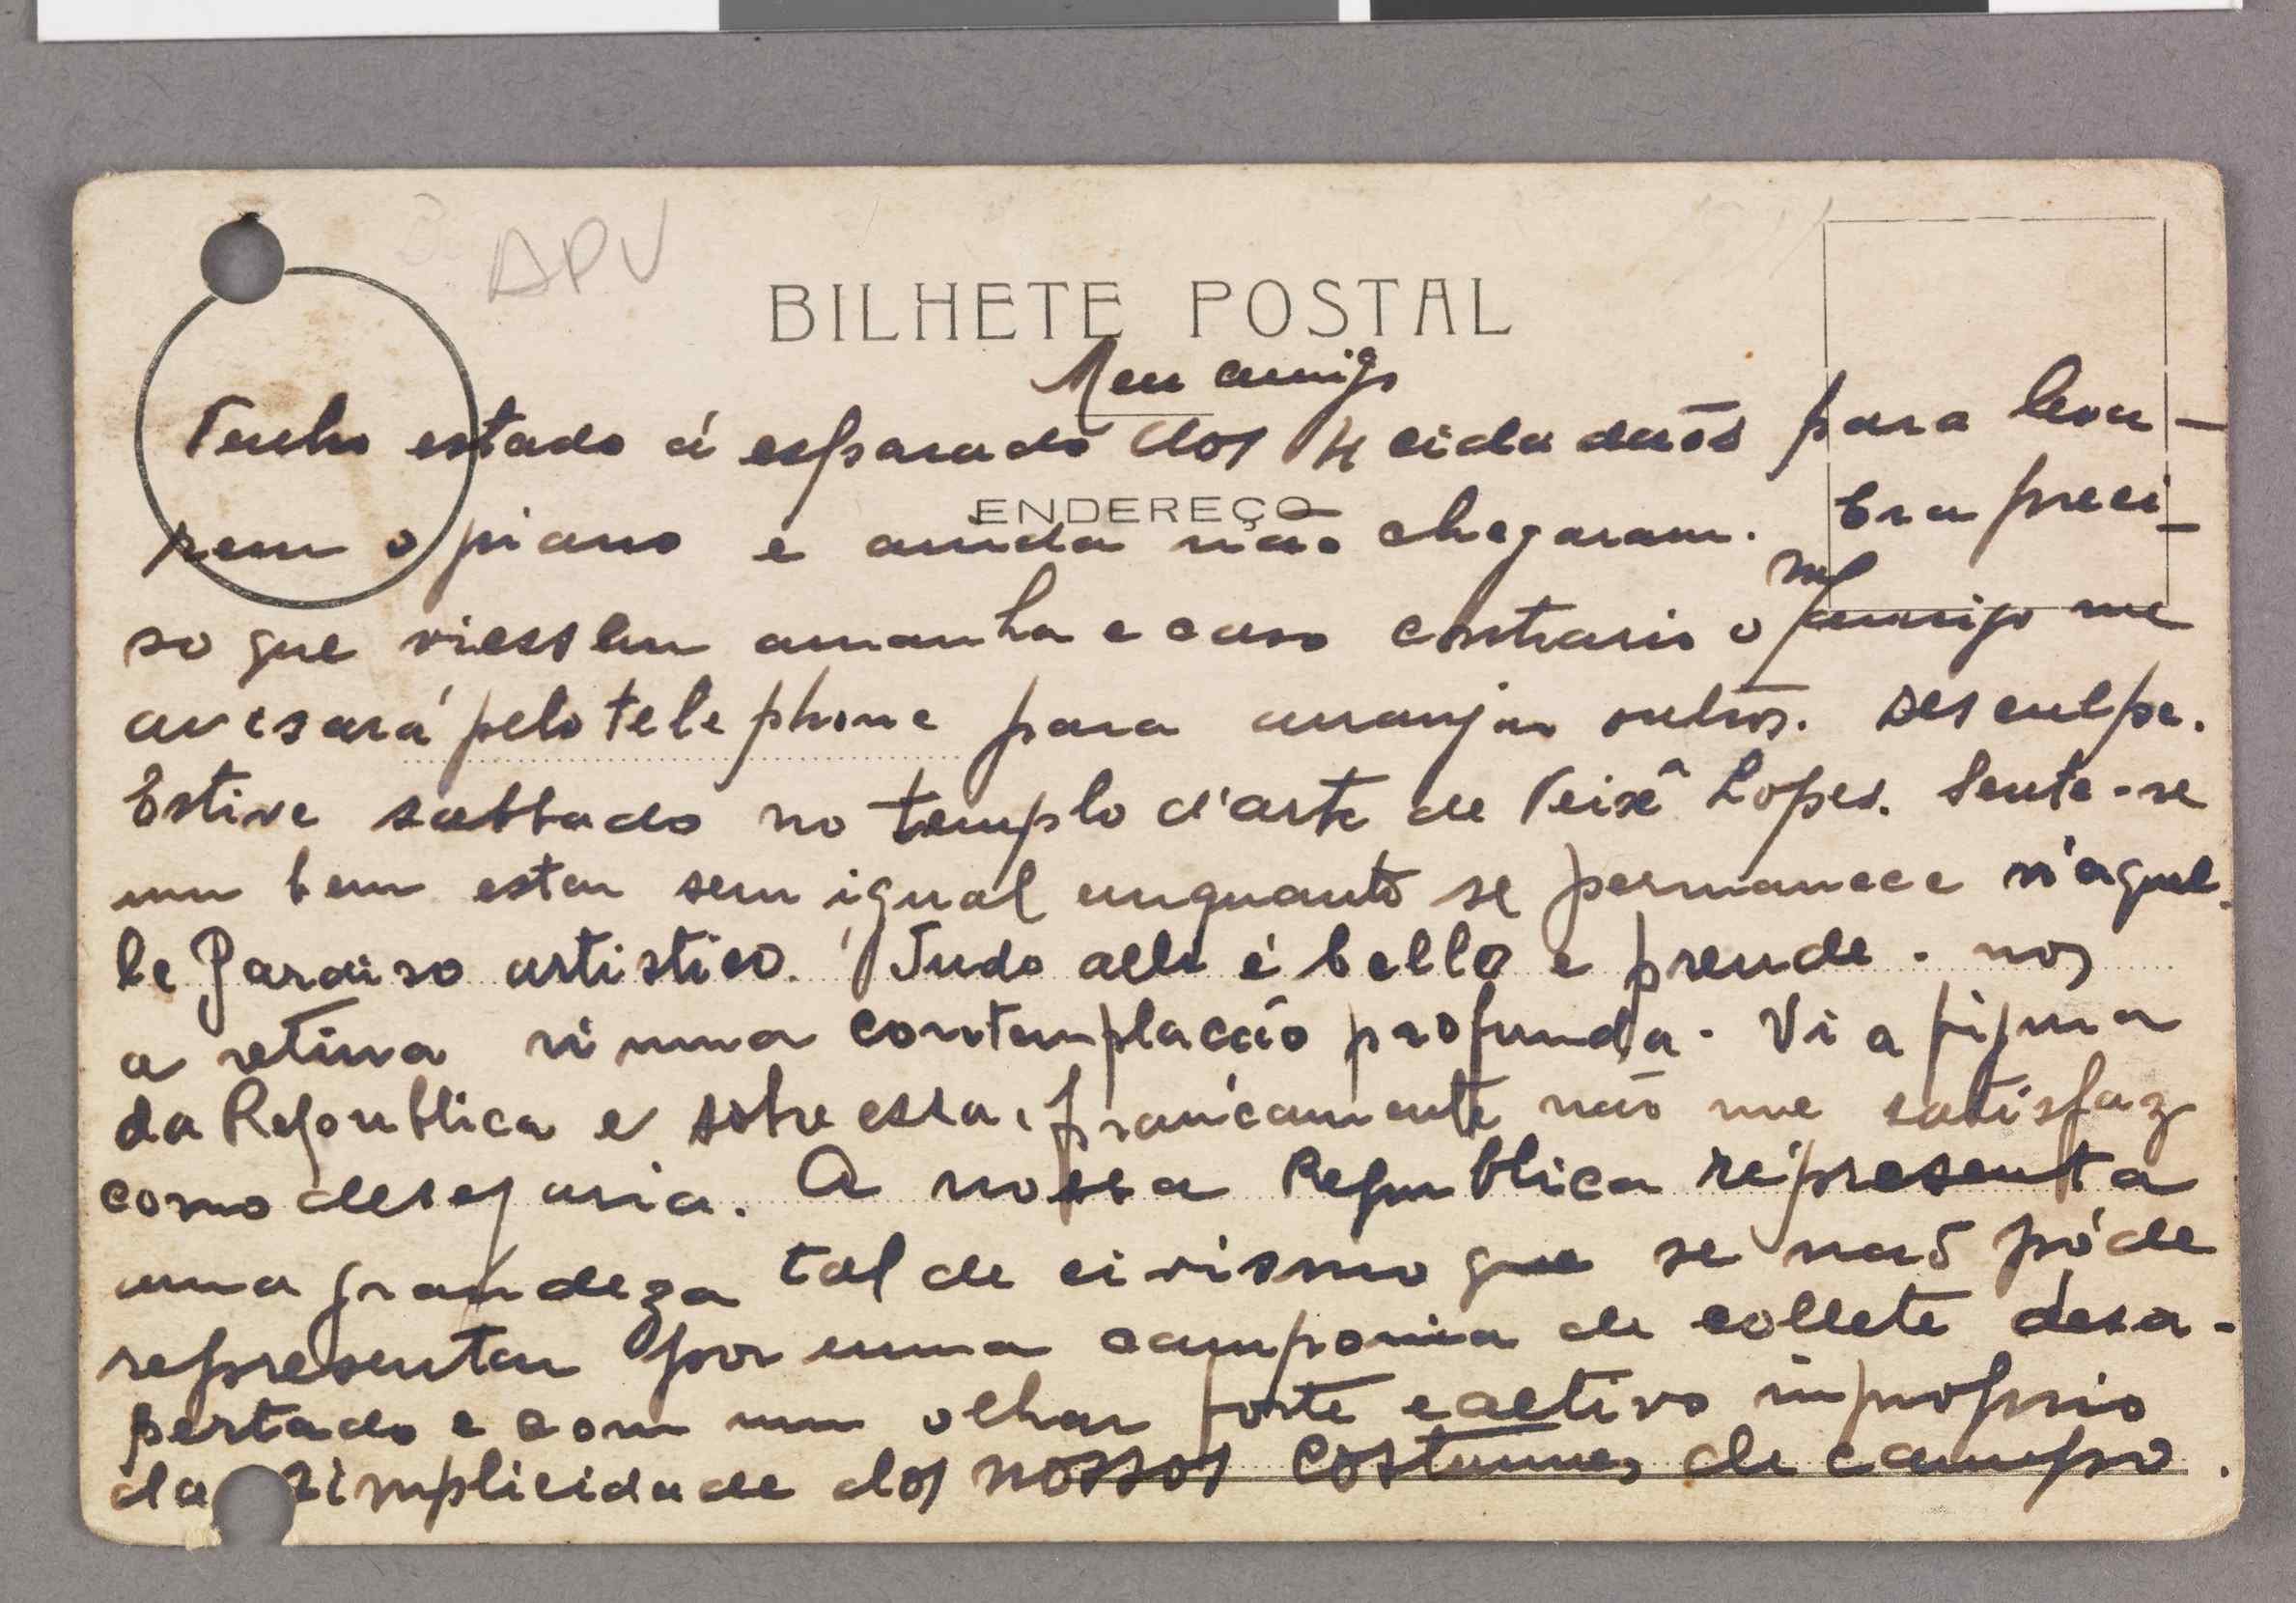 APV
BILHETE POSTAL
Meu amigo
Tenho estado á esparado dos 4 cidadaõs para leva-
rem o piano e ainda não chegaram. Era preci-
ENDEREÇO
so que viessem amanha e caso contrario o meu amigo me
avisará pelo telephone para arranjar outros. Desculpe.
Estive sabbado no templo d'arte de Teixª Lopes. Sente-se
um bem estar sem igual enquanto se permanece n'aquel-
le Paraiso artistico. Tudo alli é bello e prende-nos
a retina n'uma contemplacão profunda. Vi a figura
da Republica e sobre essa, francamente não me satisfaz
como desejaria. A nossa Republica representa
uma grandeza tal de civismo que se naõ póde
representar por uma camponia de collete desa-
pertado e com um olhar forte e altivo improprio
da simplicidade dos nossos costumes de campo.